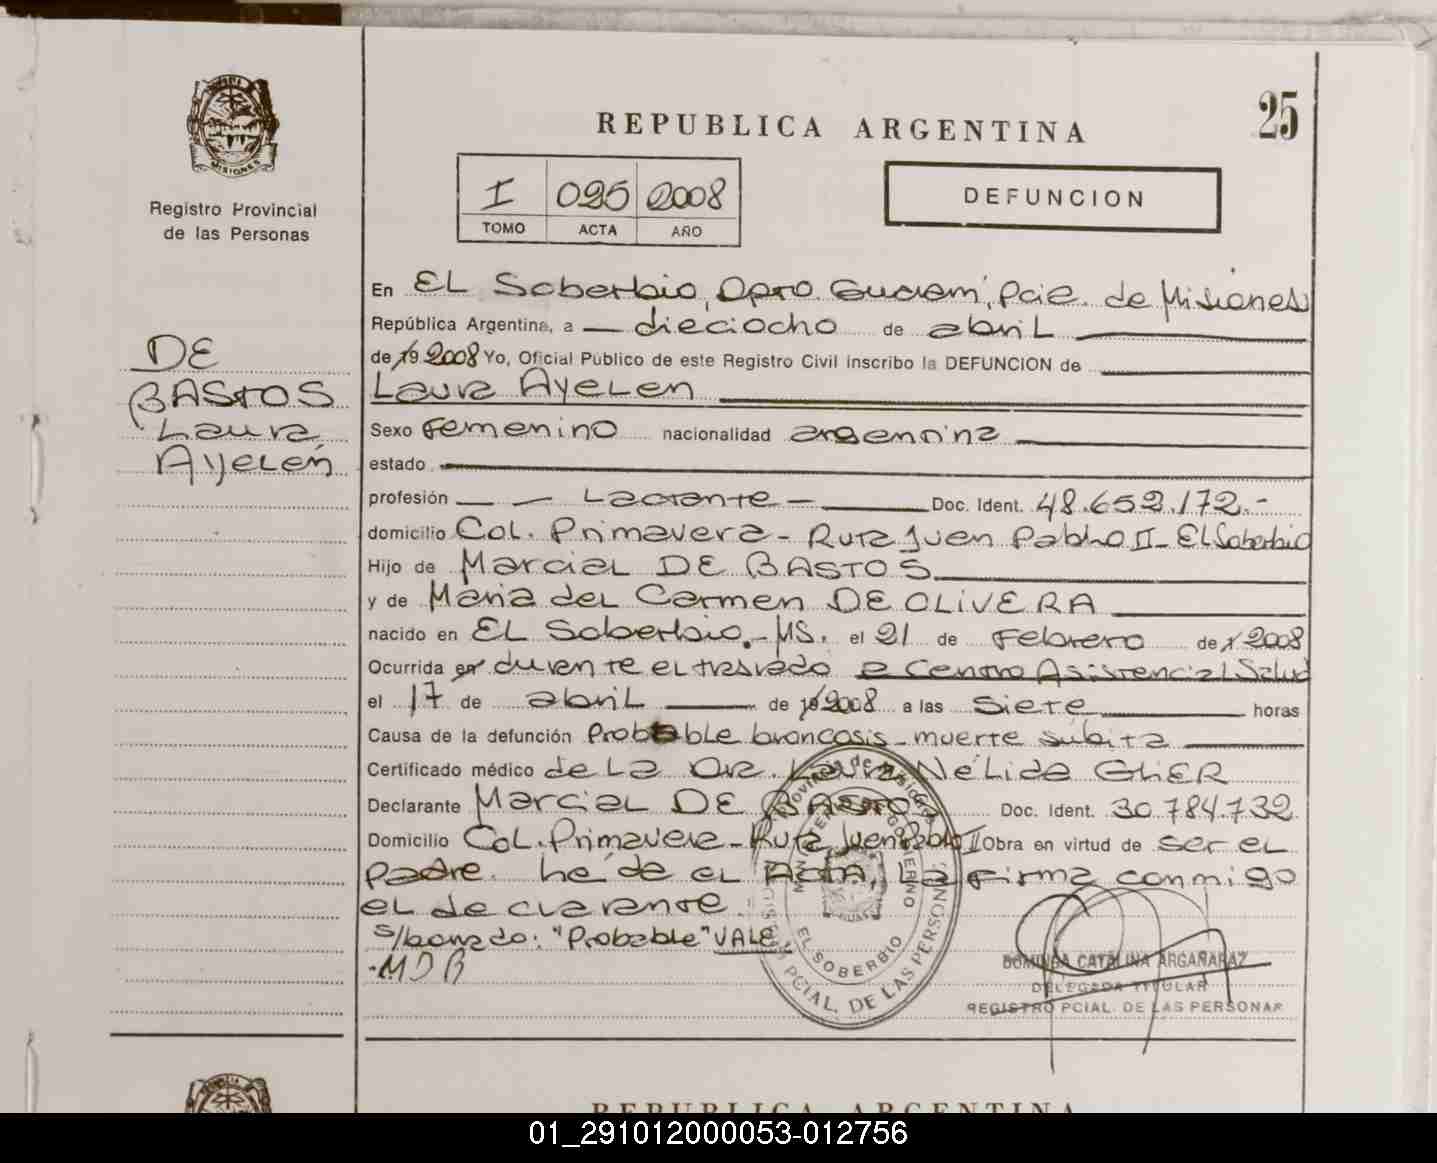 25
REPUBLICA ARGENTINA
MISIONES
Registro Provincial
de las Personas
I 025 2008
TOMO ACTA AÑO
DEFUNCION
DE
BASTOS
Laura
Ayelén
En EL Soberbio, Dpto. Guaraní, Pcia. de Misiones
República Argentina, a — dieciocho de abril
de 19 2008 Yo, Oficial Público de este Registro Civil inscribo la DEFUNCION de
Laura Ayelen
Sexo Femenino nacionalidad argentina
estado
profesión — — Lactante — Doc. Ident. 48.652.172.-
domicilio Col. Primavera - Ruta Juan Pablo II - El Soberbio
Hijo de Marcial DE BASTOS
y de María del Carmen DE OLIVERA
nacido en EL Soberbio.- MS. el 21 de Febrero de 2008
Ocurrida en durante el traslado a Centro Asistencial Salud
el 17 de abril de 19 2008 a las siete horas
Causa de la defunción Probable broncosis - muerte súbita
Certificado médico de la Dra. Laura Nélida GHER
Declarante Marcial DE BASTOS Doc. Ident. 30.784.732
Domicilio Col. Primavera - Ruta Juan Pablo II Obra en virtud de ser el
padre. Leída el Acta, la firma conmigo
el declarante.
s/borrado: "Probable" VALE
MDB
Provincia de Misiones
MINISTERIO GOBIERNO
EL SOBERBIO
REGISTRO PCIAL. DE LAS PERSONAS
DOMINGA CATALINA ARGAÑARAZ
DELEGADA TITULAR
REGISTRO PCIAL. DE LAS PERSONAS
REPUBLICA ARGENTINA
01_291012000053-012756